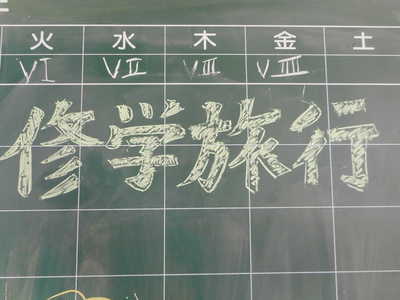 火 水 木 金 土
VI VII VIII VIII
修学旅行